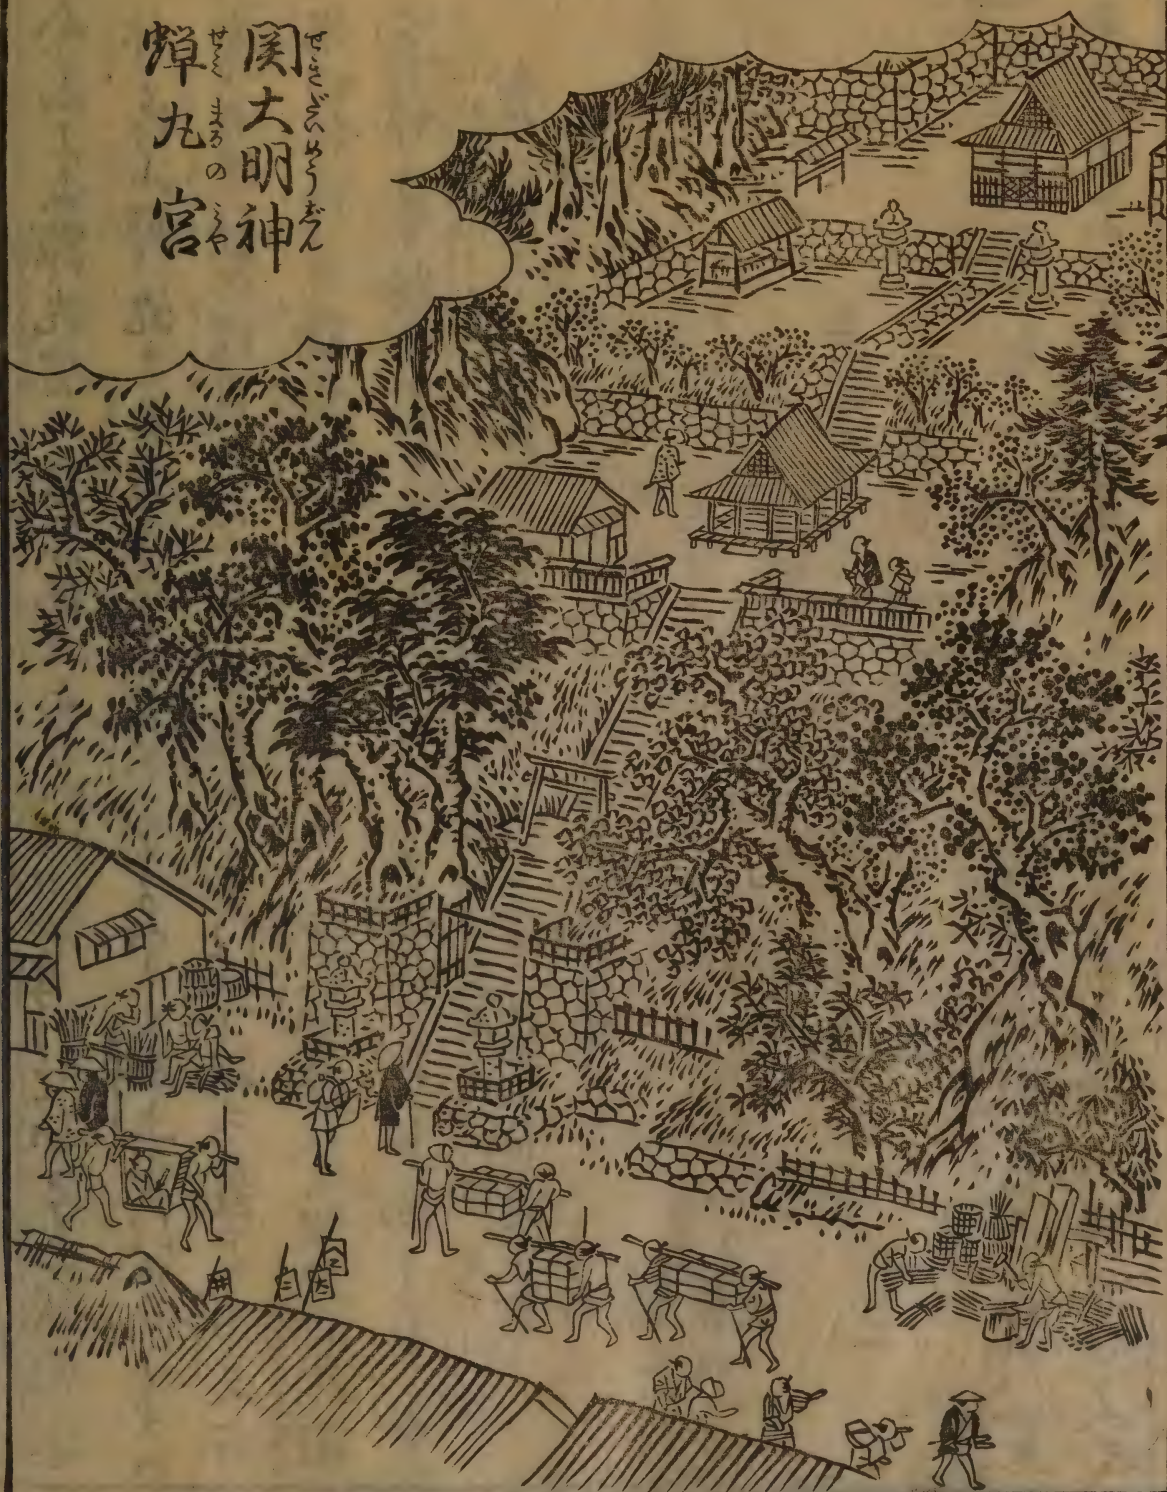 関大明神
せきだいめうじん
蝉丸宮
せみまるのみや